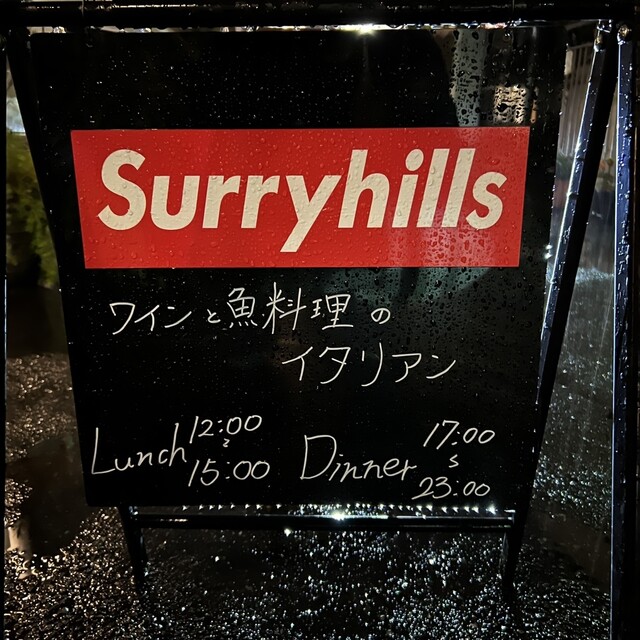 Surryhills
ワインと魚料理の
イタリアン
Lunch 12:00
~
15:00
Dinner 17:00
~
23:00